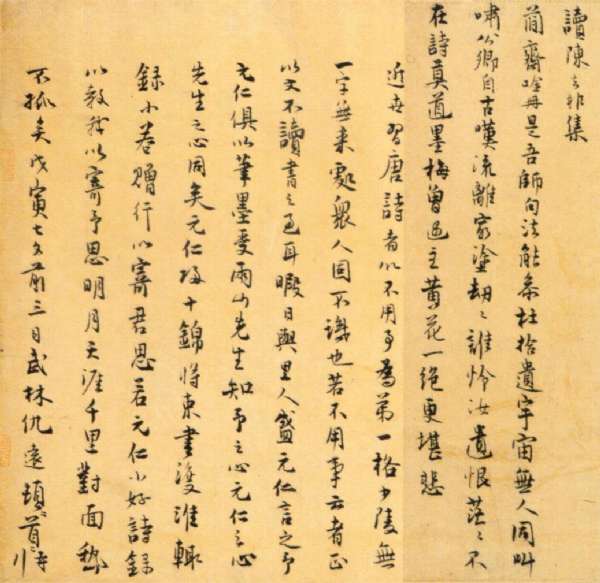 讀陳去非集
簡齋吟冊是吾師句法能參杜拾遺宇宙無人同叫
嘯公卿自古嘆流離窮塗劫〻誰怜汝遺恨茫〻不
在詩莫道墨梅曾遇主黄花一絕更堪悲
近世習唐詩者以不用事為第一格少陵無
一字無來處衆人固不識也若不用事云者正
以文不讀書之過耳暇日與里人盛元仁言之予
元仁俱以筆墨受雨山先生知予之心元仁之心
先生之心同矣元仁歸錦將東書渡淮輒
錄小卷贈行以寄君思若元仁好詩錄
以教我以寄予思明月天涯千里對面
不孤矣戊寅七夕前三日武林仇遠頓〻首〻再拜